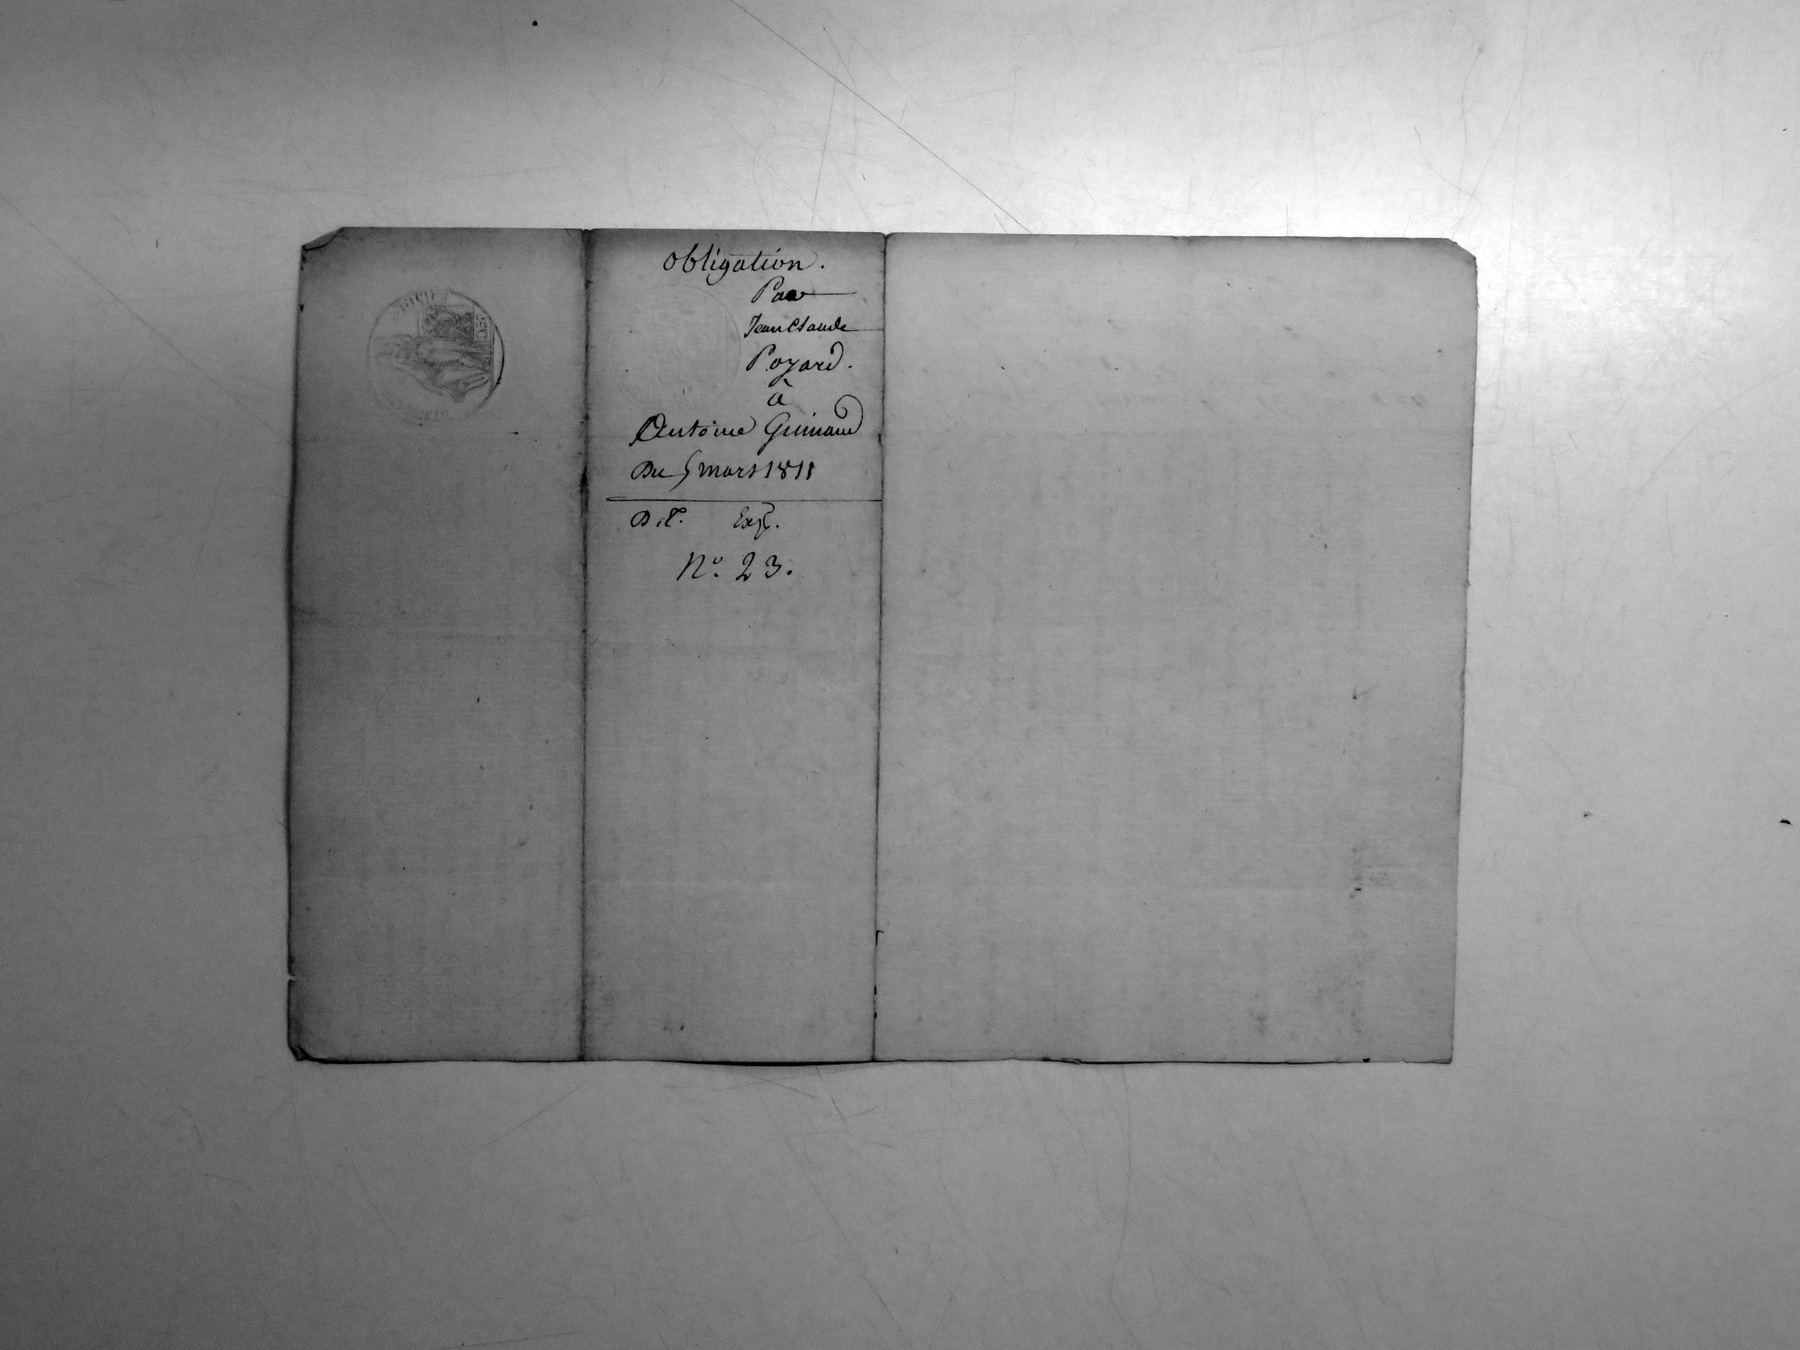 Obligation.
Par
Jean Claude
Poyard.
à
Antoine Guinand
Du 5 mars 1811
D.t. Exp.
N.o 23.